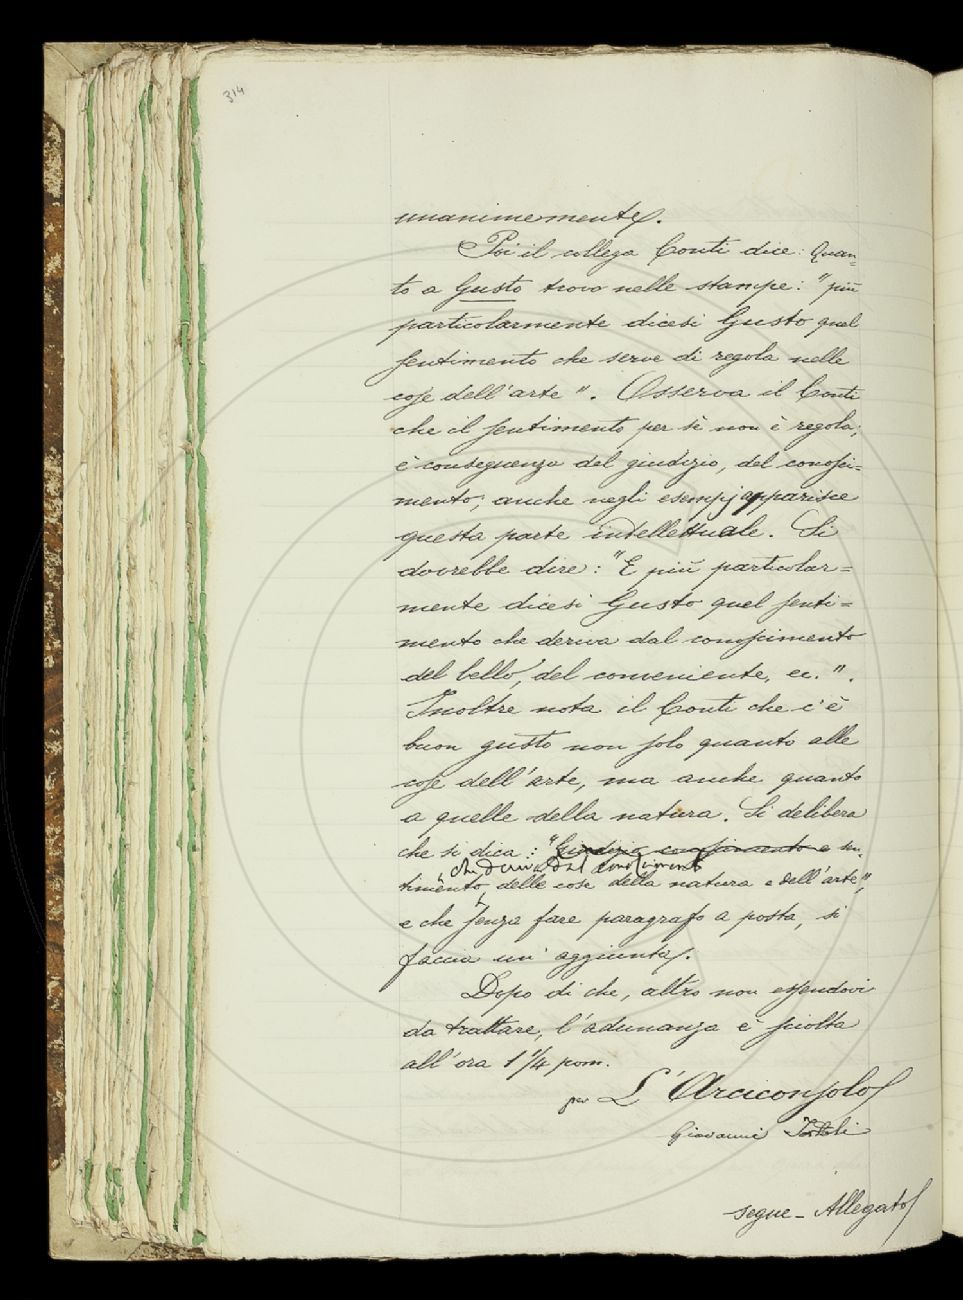 314
unanimemente.
Poi il collega Conti dice: Quan=
to a Gusto trovo nelle stampe: "più
particolarmente dicesi Gusto quel
sentimento che serve di regola nelle
cose dell'arte". Osserva il Conti
che il sentimento per sè non è regola;
è conseguenza del giudizio, del conosci=
mento; anche negli esempj apparisce
questa parte intellettuale. Si
dovrebbe dire: "E più particolar=
mente dicesi Gusto quel senti=
mento che deriva dal conoscimento
del bello, del conveniente, ec.".
Inoltre nota il Conti che c'è
buon gusto non solo quanto alle
cose dell'arte, ma anche quanto
a quelle della natura. Si delibera
che si dica: "Giudizio conoscimento e sen=
che deriva dal conoscimento
timento, delle cose della natura e dell'arte",
e che senza fare paragrafo a posta, si
faccia un'aggiunta.
Dopo di che, altro non essendovi
da trattare, l'adunanza è sciolta
all'ora 1 1/4 pom.
per L'Arciconsolo
Giovanni Tortoli
segue - Allegato